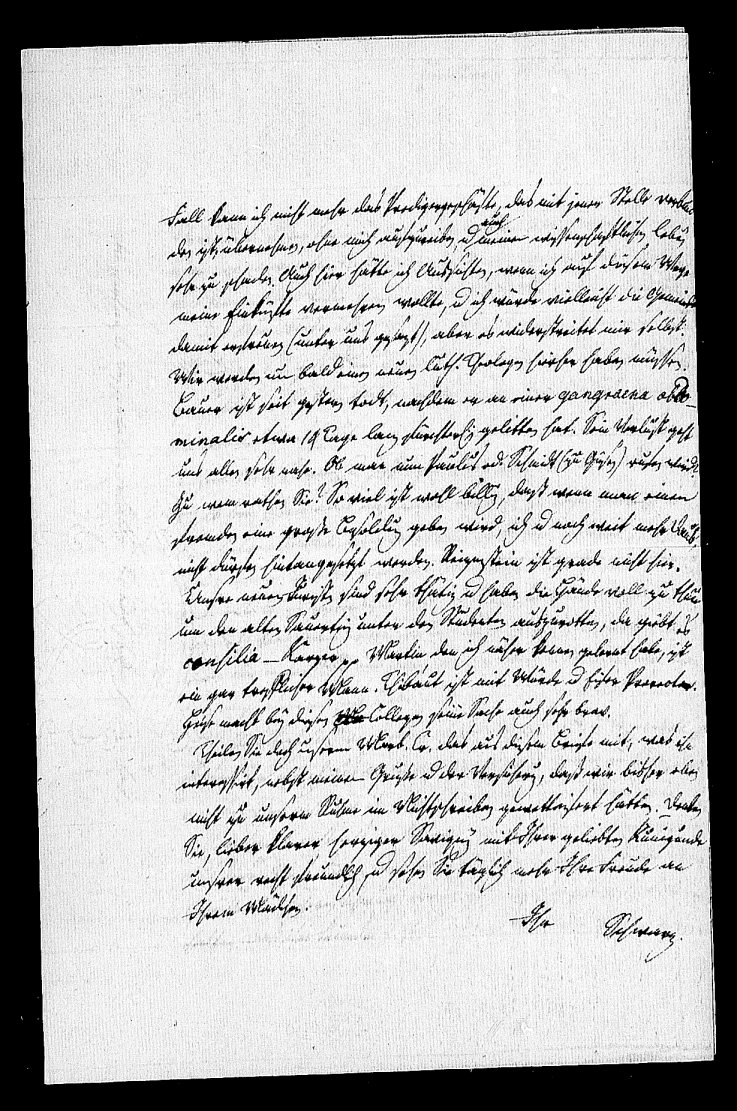 Fall kann ich nicht mehr das Predigergeschäfte, das mit jener Stelle verbun-
den ist, übernehmen, ohne mich aufzureiben u auch meinem wissenschaftlichen Leben
sehr zu schaden. Auch hier hätte ich Aussichten, wenn ich auf diesem Wege
meine Einkünfte vermehren wollte, u ich würde vielleicht die Gemeinde
damit erfreuen (unter uns gesagt), aber es widerstreitet mir selbst.
Wir werden nun bald einen neuen luth. Theologen hierher haben müssen.
Bauer ist seit gestern todt, nachdem er an einer gangraena abdo-
minalis etwa 14 Tage lang fürchterlich gelitten hat. Sein Verlust geht
uns allen sehr nahe. Ob man nun Paulus od. Schmidt (zu Giesen) rufen wird?
Zu wem rathen Sie? So viel ist wohl billig, daß wenn man einem
fremden eine große Besoldung geben wird, ich u noch weit mehr Daub,
nicht dürfen hintangesetzt werden. Reizenstein ist grade nicht hier.
Unsre neuen Juristen sind sehr thätig u haben die Hände voll zu thun
um den alten Sauerteig unter den Studenten auszurotten, da giebt es
consilia – Karzer pp Martin den ich näher kennen gelernt habe, ist
ein gar trefflicher Mann. Thibaut ist mit Würde u Eifer Prorector.
Heise macht bey diesen Collegen seine Sache auch sehr brav.
Theilen Sie doch unserm Marb. Cr. das aus diesem Briefe mit, was ihn
interessirt, nebst meinem Gruße u der Versicherung, daß wir bisher eben
nicht zu unserm Ruhme im Nichtschreiben gewetteifert hätten. Denken
Sie, lieber theurer herziger Savigny mit Ihrer geliebten Kunigunde
unsrer recht freundlich, u sehen Sie täglich mehr Ihre Freude an
Ihrem Mädchen.
Ihr Schwarz.